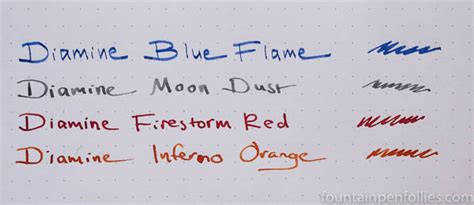 Diamine Blue Flame
Diamine Moon Dust
Diamine Firestorm Red
Diamine Inferno Orange
fountainpenfollies.com